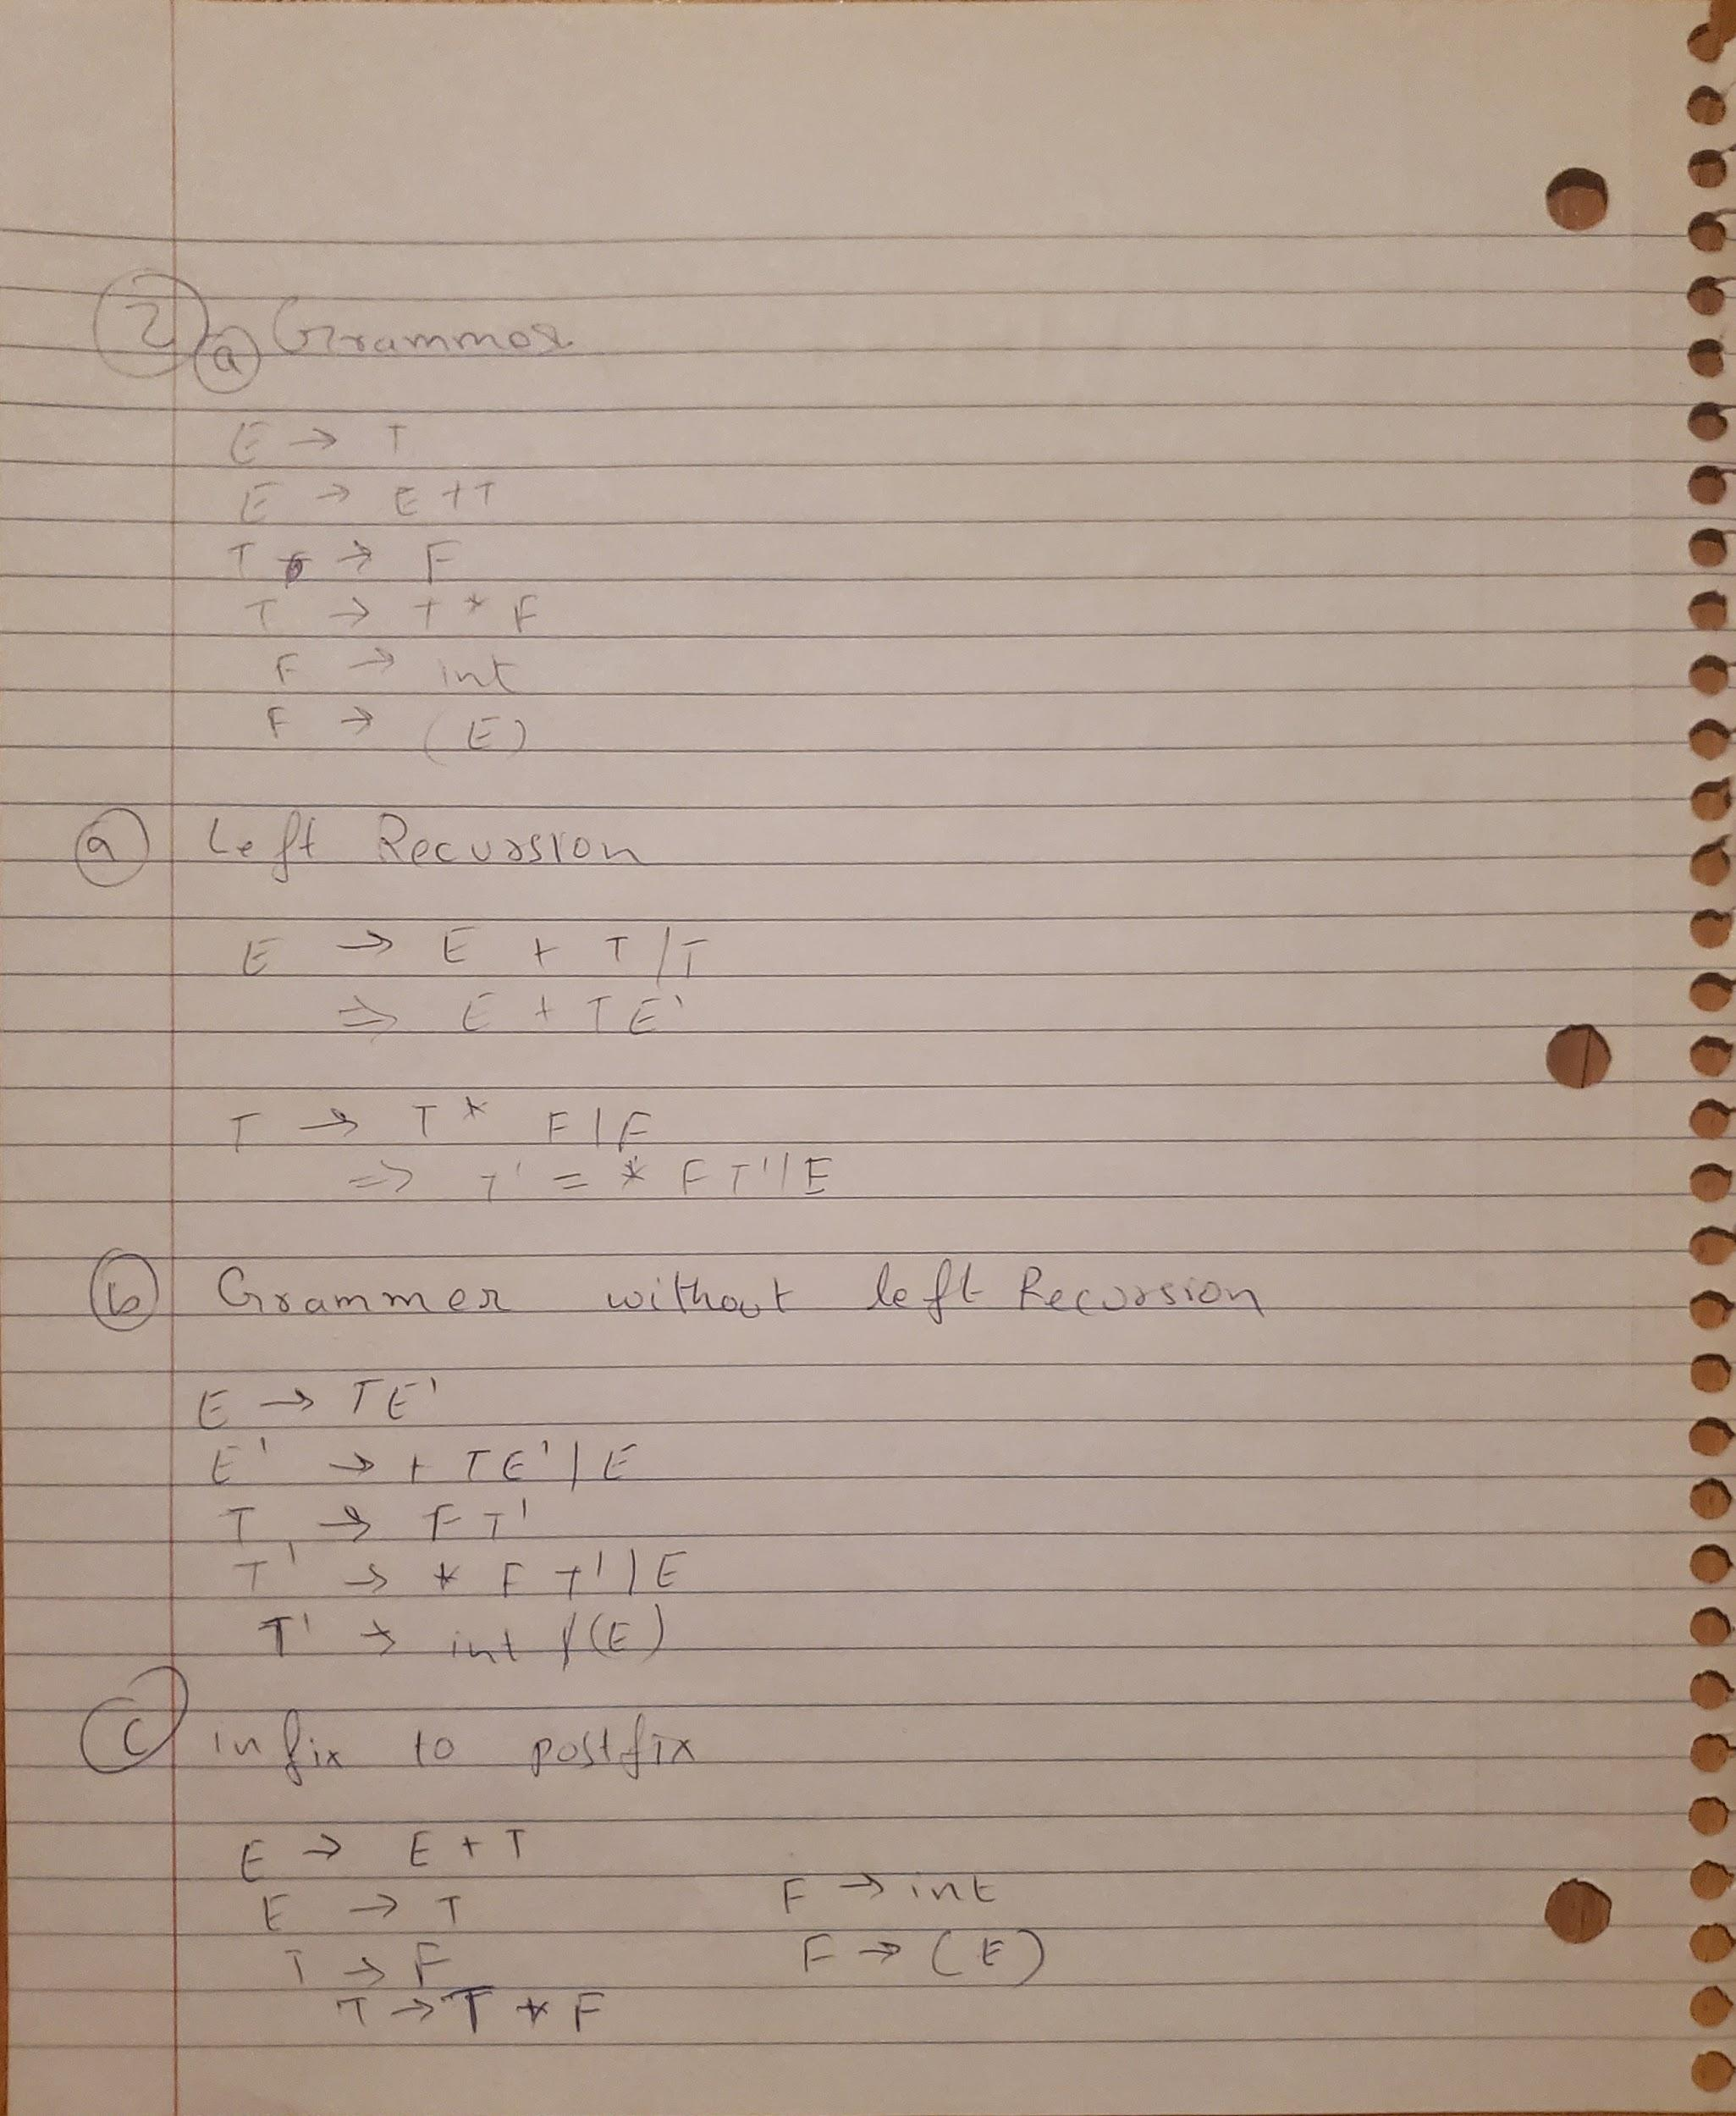 2 a Grammer
E → T
E → E + T
T → F
T → T * F
F → int
F → (E)
a Left Recursion
E → E + T / T
⇒ E + T E'
T → T * F | F
⇒ T' = * F T' | E
b Grammer without left Recursion
E → T E'
E' → + T E' | E
T → F T'
T' → * F T' | E
T' → int / (E)
c infix to postfix
E → E + T
E → T
T → F
T → T * F
F → int
F → (E)